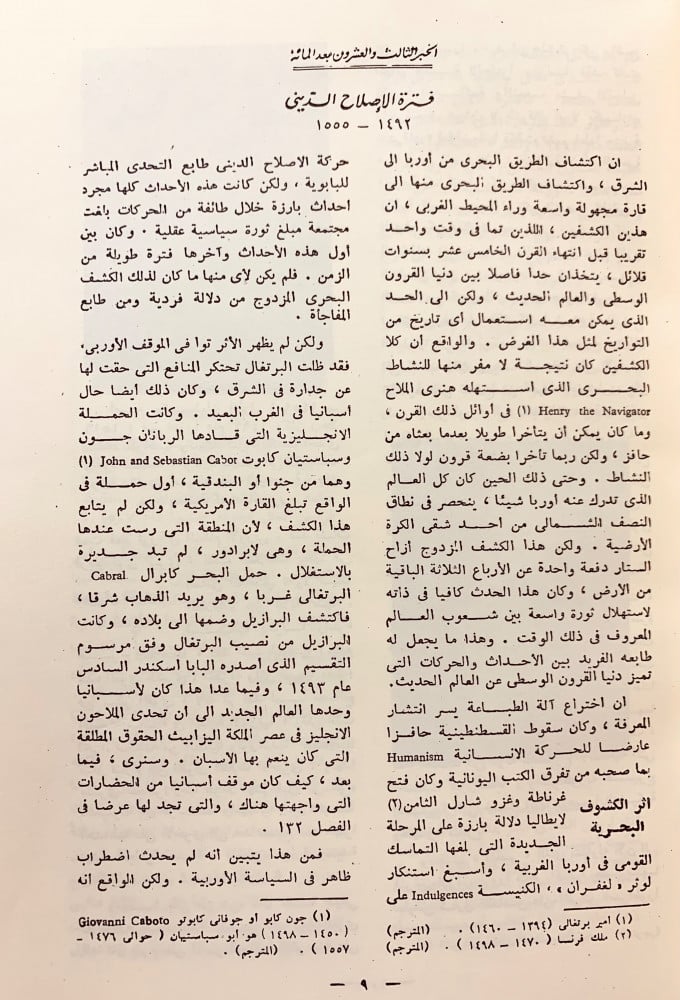 الخبر الثالث والعشرون بعد المائة
فترة الإصلاح الدينى
١٤٩٢ — ١٥٥٥
ان اكتشاف الطريق البحرى من أوربا الى
الشرق ، واكتشاف الطريق البحرى منها الى
قارة مجهولة واسعة وراء المحيط الغربى ، ان
هذين الكشفين ، اللذين تما فى وقت واحد
تقريبا قبل انتهاء القرن الخامس عشر بسنوات
قلائل ، يتخذان حدا فاصلا بين دنيا القرون
الوسطى والعالم الحديث ، ولكن الى الحد
الذى يمكن معه استعمال أى تاريخ من
التواريخ لمثل هذا الغرض . والواقع أن كلا
الكشفين كان نتيجة لا مفر منها للنشاط
البحرى الذى استهله هنرى الملاح
Henry the Navigator (١) فى أوائل ذلك القرن ،
وما كان يمكن أن يتأخرا طويلا بعدما بعثاه من
حافز ، ولكن ربما تأخرا بضعة قرون لولا ذلك
النشاط . وحتى ذلك الحين كان كل العالم
الذى تدرك عنه أوربا شيئا ، ينحصر فى نطاق
النصف الشمالى من أحد شقى الكرة
الأرضية . ولكن هذا الكشف المزدوج أزاح
الستار دفعة واحدة عن الأرباع الثلاثة الباقية
من الأرض ، وكان هذا الحدث كافيا فى ذاته
لاستهلال ثورة واسعة بين شعوب العالم
المعروف فى ذلك الوقت . وهذا ما يجعل له
طابعه الفريد بين الأحداث والحركات التى
تميز دنيا القرون الوسطى عن العالم الحديث.
ان اختراع آلة الطباعة يسر انتشار
المعرفة ، وكان سقوط القسطنطينية حافزا
عارضا للحركة الانسانية Humanism
بما صحبه من تفرق الكتب اليونانية وكان فتح
اثر الكشوف
البحرية
غرناطة وغزو شارل الثامن(٢)
لايطاليا دلالة بارزة على المرحلة
الجديدة التى بلغها التماسك
القومى فى أوربا الغربية ، وأسبغ استنكار
لوثر « لغفران » ، الكنيسة Indulgences على
(١) أمير برتغالى (١٣٩٤ – ١٤٦٠) . (المترجم)
(٢) ملك فرنسا (١٤٧٠ – ١٤٩٨) . (المترجم)
حركة الاصلاح الدينى طابع التحدى المباشر
للبابوية ، ولكن كانت هذه الأحداث كلها مجرد
احداث بارزة خلال طائفة من الحركات بلغت
مجتمعة مبلغ ثورة سياسية عقلية . وكان بين
أول هذه الأحداث وآخرها فترة طويلة من
الزمن . فلم يكن لأى منها ما كان لذلك الكشف
البحرى المزدوج من دلالة فردية ومن طابع
المفاجأة .
ولكن لم يظهر الأثر توا فى الموقف الأوربى،
فقد ظلت البرتغال تحتكر المنافع التى حقت لها
عن جدارة فى الشرق ، وكان ذلك أيضا حال
أسبانيا فى الغرب البعيد . وكانت الحملة
الانجليزية التى قادها الربانان جون
وسباستيان كابوت John and Sebastian Cabot (١)
وهما من جنوا أو البندقية ، أول حملة فى
الواقع تبلغ القارة الأمريكية ، ولكن لم يتابع
هذا الكشف ، لأن المنطقة التى رست عندها
الحملة ، وهى لابرادور ، لم تبد جديرة
بالاستغلال . حمل البحر كابرال Cabral
البرتغالى غربا ، وهو يريد الذهاب شرقا ،
فاكتشف البرازيل وضمها الى بلاده ، وكانت
البرازيل من نصيب البرتغال وفق مرسوم
التقسيم الذى أصدره البابا أسكندر السادس
عام ١٤٩٣ ، وفيما عدا هذا كان لأسبانيا
وحدها العالم الجديد الى أن تحدى الملاحون
الانجليز فى عصر الملكة اليزابيث الحقوق المطلقة
التى كان ينعم بها الأسبان . وسنرى ، فيما
بعد ، كيف كان موقف أسبانيا من الحضارات
التى واجهتها هناك ، والتى تجد لها عرضا فى
الفصل ١٣٢ .
فمن هذا يتبين أنه لم يحدث اضطراب
ظاهر فى السياسة الأوربية . ولكن الواقع أنه
(١) جون كابو أو جوفانى كابوتو Giovanni Caboto
(١٤٥٠ – ١٤٩٨) هو أبو سباستيان ( حوالى ١٤٧٦ –
١٥٥٧ ) . (المترجم) .
— ٩ —